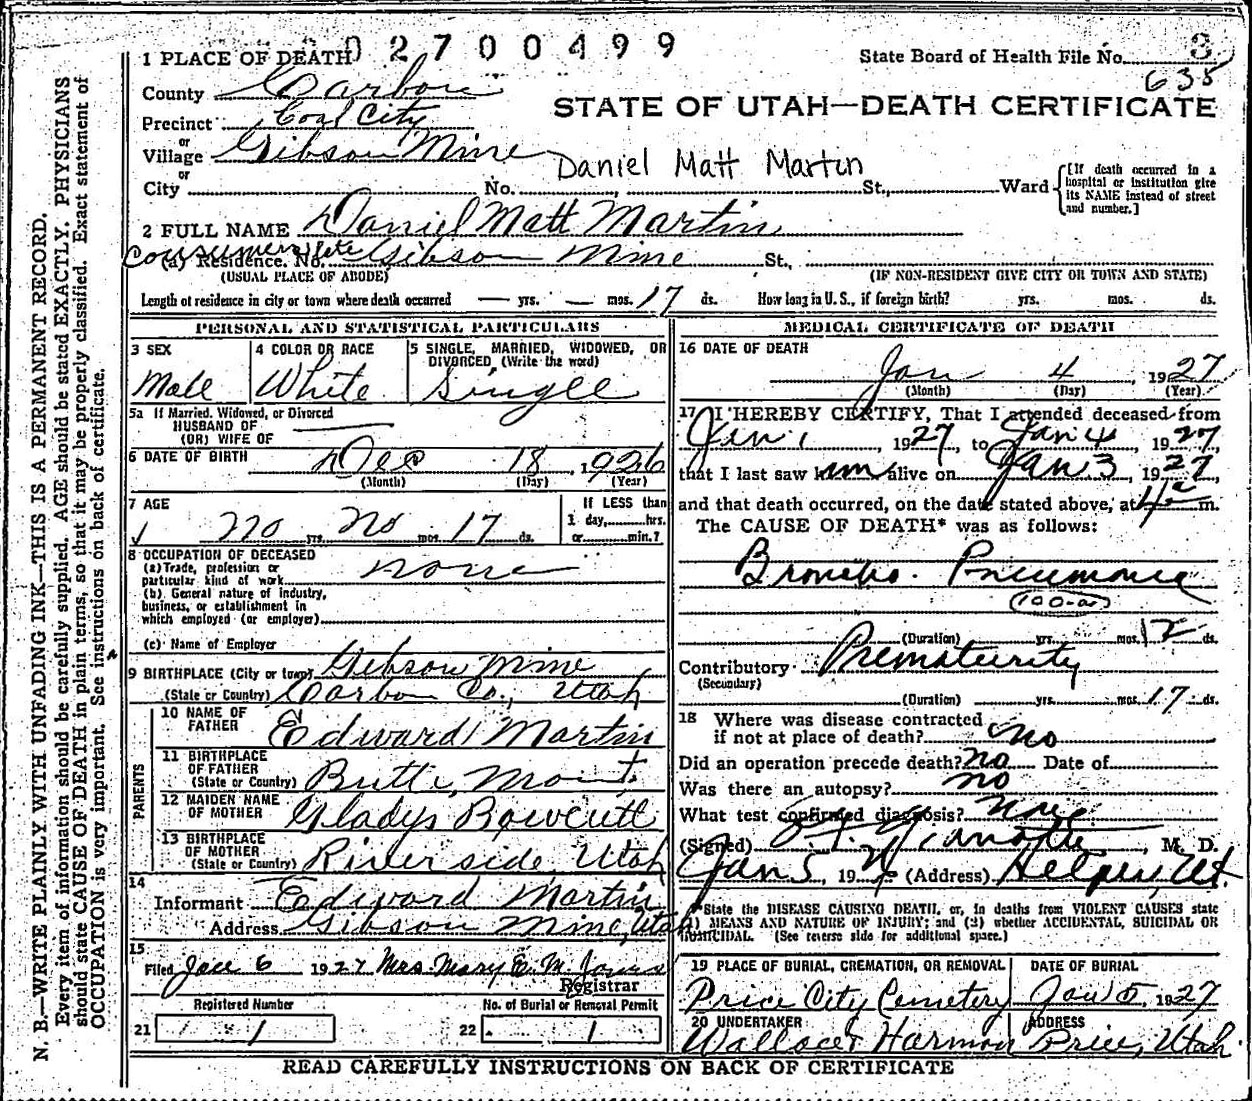 02700499
1 PLACE OF DEATH
State Board of Health File No. 3
635
County Carbon
STATE OF UTAH—DEATH CERTIFICATE
Precinct Coal City
or
Village Gibson Mine
Daniel Matt Martin
or
City No. , St., Ward [If death occurred in a hospital or institution give its NAME instead of street and number.]
2 FULL NAME Daniel Matt Martin
Consumers, late
(a) Residence. No. Gibson Mine St.,
(USUAL PLACE OF ABODE) (IF NON-RESIDENT GIVE CITY OR TOWN AND STATE)
Length of residence in city or town where death occurred — yrs. — mos. 17 ds. How long in U. S., if foreign birth? yrs. mos. ds.
PERSONAL AND STATISTICAL PARTICULARS
3 SEX
Male
4 COLOR OR RACE
White
5 SINGLE, MARRIED, WIDOWED, OR
DIVORCED (Write the word)
Single
5a If Married, Widowed, or Divorced
HUSBAND OF
(OR) WIFE OF
6 DATE OF BIRTH Dec 18, 1926
(Month) (Day) (Year)
7 AGE
No yrs. No mos. 17 ds.
If LESS than
1 day, hrs.
or min.?
8 OCCUPATION OF DECEASED
(a) Trade, profession or
particular kind of work none
(b) General nature of industry,
business, or establishment in
which employed (or employer)
(c) Name of Employer
9 BIRTHPLACE (City or town) Gibson Mine
(State or Country) Carbon Co., Utah
PARENTS
10 NAME OF
FATHER Edward Martin
11 BIRTHPLACE
OF FATHER
(State or Country) Butte, Mont.
12 MAIDEN NAME
OF MOTHER Gladys Bowcutt
13 BIRTHPLACE
OF MOTHER
(State or Country) Riverside, Utah
14
Informant Edward Martin
Address Gibson Mine, Utah
15
Filed Jan 6 1927 Mrs. Mary E. M. Jones
Registrar
Registered Number
21 1
No. of Burial or Removal Permit
22 1
MEDICAL CERTIFICATE OF DEATH
16 DATE OF DEATH
Jan 4, 1927
(Month) (Day) (Year)
17 I HEREBY CERTIFY, That I attended deceased from
Jan 1, 1927, to Jan 4 1927
that I last saw him alive on Jan 3, 1927,
and that death occurred, on the date stated above, at 4 a m.
The CAUSE OF DEATH* was as follows:
Broncho. Pneumonia
(100-a)
(Duration) yrs. mos. 12 ds.
Contributory Prematurity
(Secondary)
(Duration) yrs. mos. 17 ds.
18 Where was disease contracted
if not at place of death? no
Did an operation precede death? no Date of
Was there an autopsy? no
What test confirmed diagnosis? none
(Signed) M. D.
Jan 5, 19 (Address) Helper, Ut.
*State the DISEASE CAUSING DEATH, or, in deaths from VIOLENT CAUSES state
(1) MEANS AND NATURE OF INJURY; and (2) whether ACCIDENTAL, SUICIDAL OR
HOMICIDAL. (See reverse side for additional space.)
19 PLACE OF BURIAL, CREMATION, OR REMOVAL
Price City Cemetery
DATE OF BURIAL
Jan 5, 1927
20 UNDERTAKER
Wallace & Harmon
ADDRESS
Price, Utah
READ CAREFULLY INSTRUCTIONS ON BACK OF CERTIFICATE
N. B.—WRITE PLAINLY WITH UNFADING INK—THIS IS A PERMANENT RECORD.
Every item of information should be carefully supplied. AGE should be stated EXACTLY. PHYSICIANS
should state CAUSE OF DEATH in plain terms, so that it may be properly classified. Exact statement of
OCCUPATION is very important. See instructions on back of certificate.